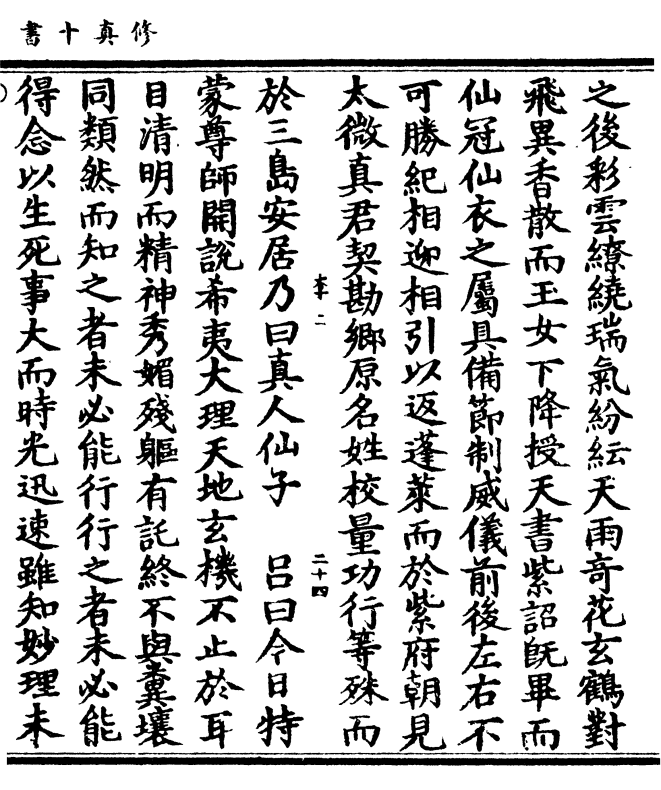 修真十書
之後彩雲繚繞瑞氣紛紜天雨奇花玄鶴對
飛異香散而玉女下降授天書紫詔既畢而
仙冠仙衣之屬具備節制威儀前後左右不
可勝紀相迎相引以返蓬萊而於紫府朝見
太微真君契勘鄉原名姓校量功行等殊而
二
二十四
於三島安居乃曰真人仙子　呂曰今日特
蒙尊師開說希夷大理天地玄機不止於耳
目清明而精神秀媚殘軀有託終不與糞壤
同類然而知之者未必能行行之者未必能
得念以生死事大而時光迅速雖知妙理未